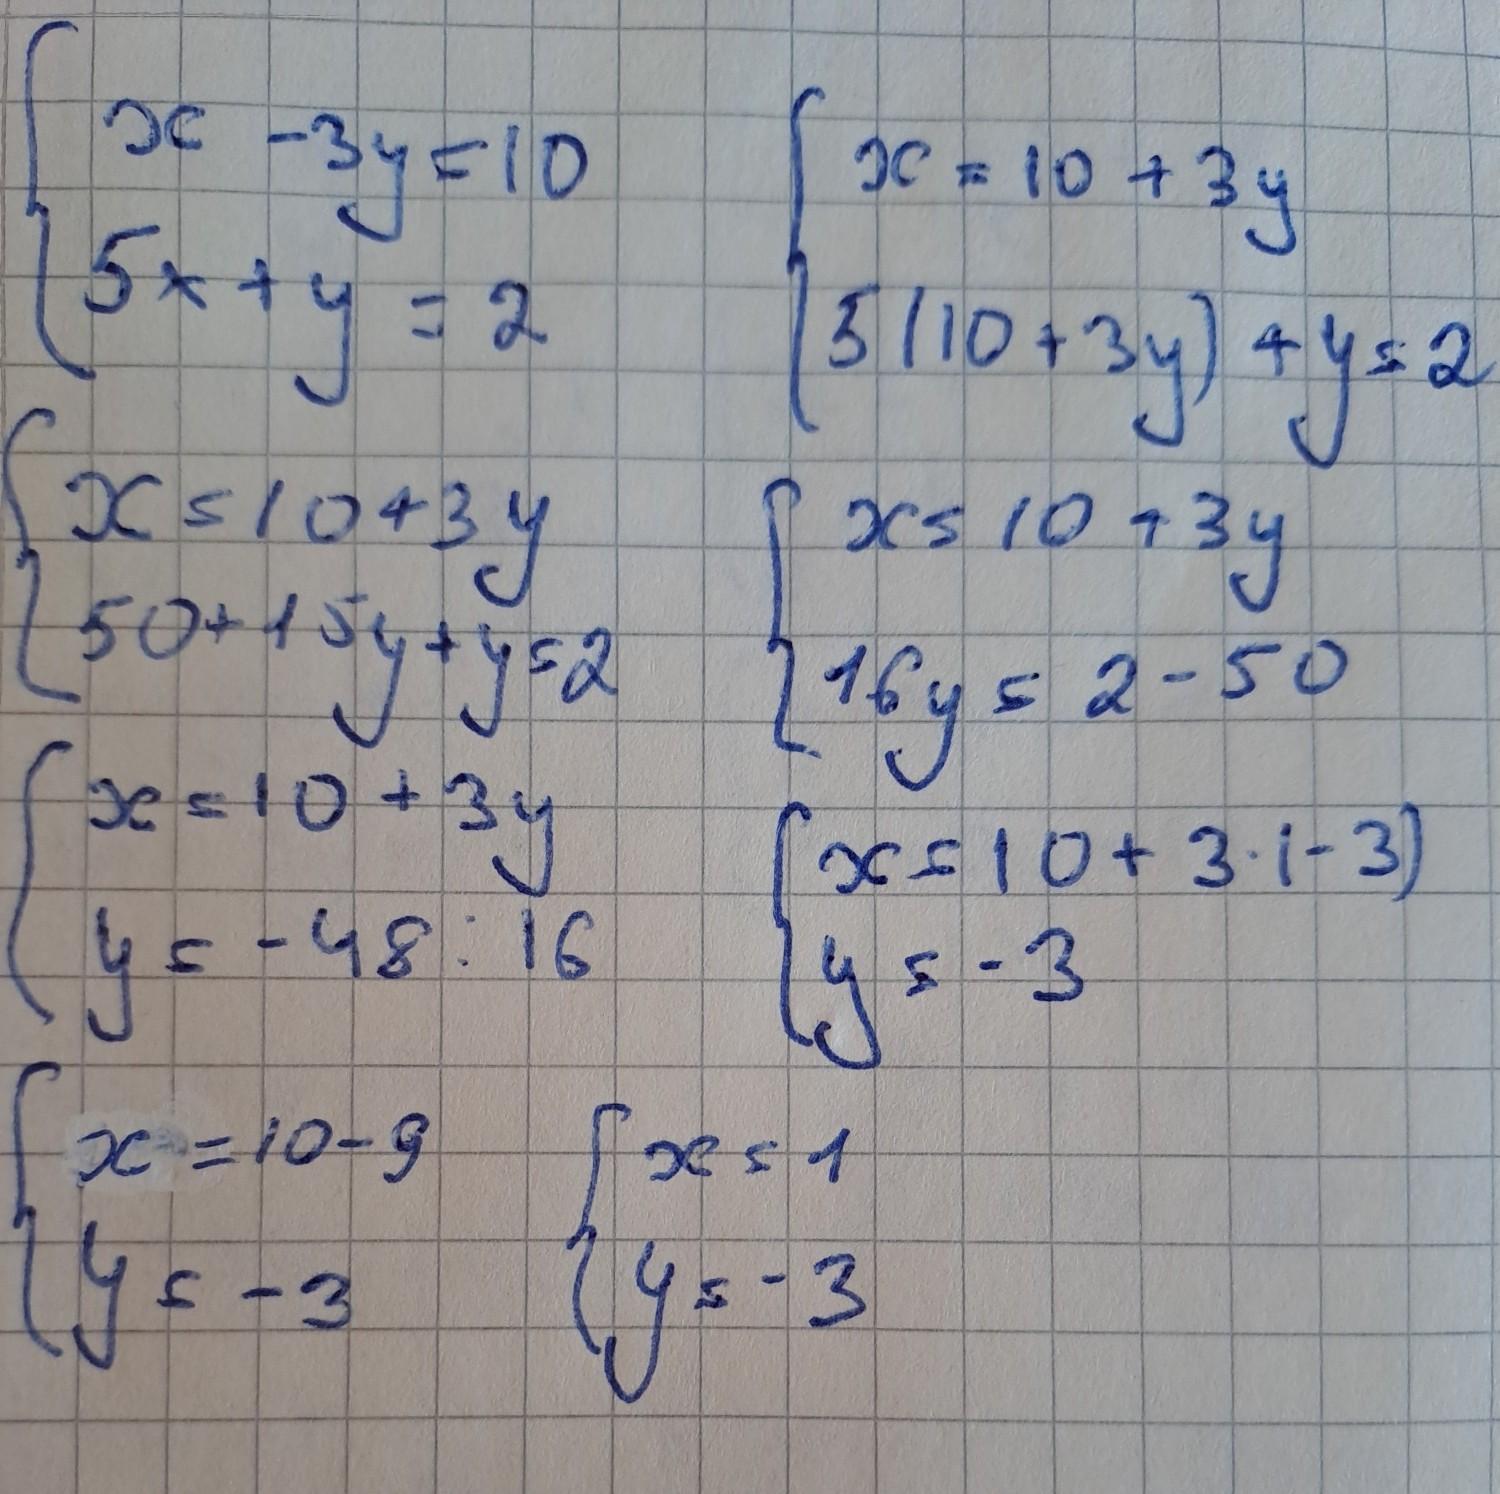 x - 3y = 10
5x + y = 2
x = 10 + 3y
5(10 + 3y) + y = 2
x = 10 + 3y
50 + 15y + y = 2
x = 10 + 3y
16y = 2 - 50
x = 10 + 3y
y = -48 : 16
x = 10 + 3 · (-3)
y = -3
x = 10 - 9
y = -3
x = 1
y = -3